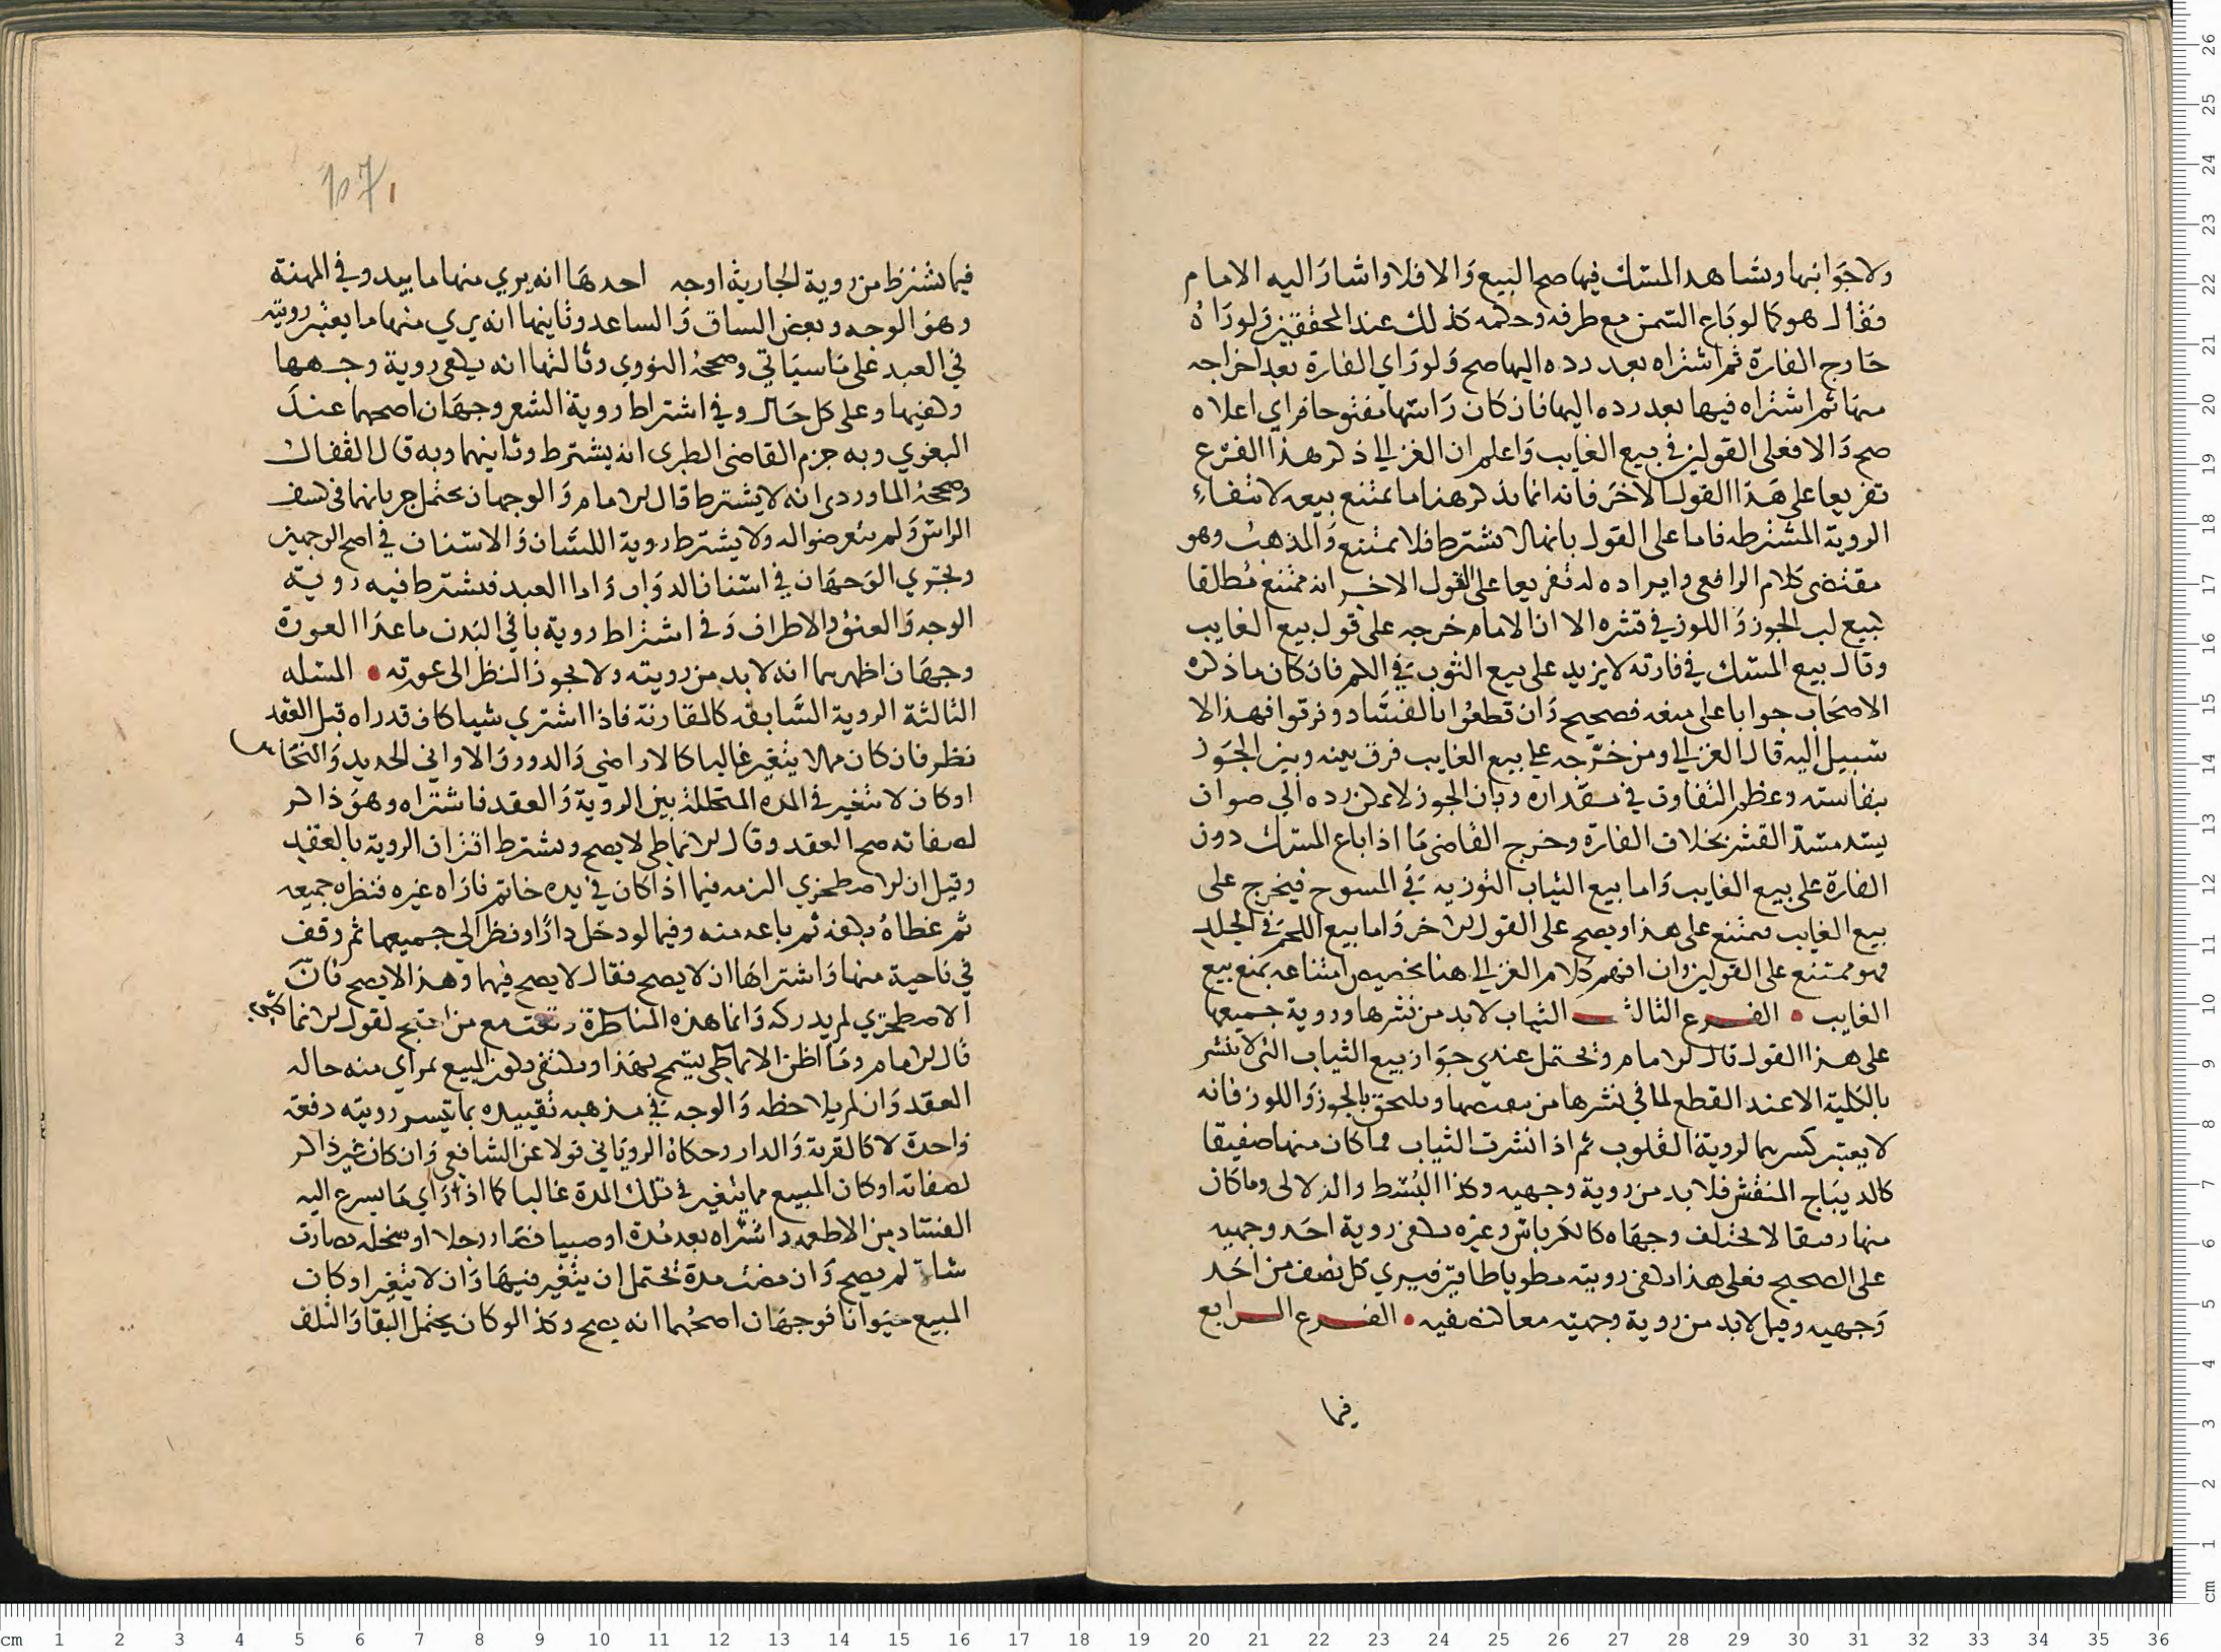 ولا جوانبها وشاهد المسك فيها صح البيع والا فلا واشار اليه الامام
فقال هو كما لو باع السمن مع ظرفه وحكمه كذلك عند المحققين ولو راه
خارج الفارة ثم اشتراه بعد رده اليها صح ولو راي الفارة بعد اخراجه
منها ثم اشتراه فيها بعد رده اليها فان كان راسها مفتوحا فراي اعلاه
صح والا فعلى القولين في بيع الغايب واعلم ان الغزالي ذكر هذا الفرع
تفريعا على هذا القول الاخر فانه انما يذكر هنا ما يمتنع بيعه لانتفاء
الروية المشترطه فاما على القول بانها لا تشترط فلا يمتنع والمذهب وهو
مقتضى كلام الرافعي وايراده له تفريعا على القول الاخر انه ممتنع مطلقا
لبيع لب الجوز واللوز في قشره الا ان الامام خرجه على قول بيع الغايب
وقال بيع المسك في فارته لا يزيد على بيع الثوب في الكم فان كان ما ذكره
الاصحاب جوابا على منعه فصحيح وان قطعوا بالفساد وفرقوا فهذا لا
سبيل اليه قال الغزالي ومن خرجه على بيع الغايب فرق بينه وبين الجوز
بنفاسته وعظم التفاوت في مقداره وبان الجوز لا يمكن رده الي صوان
يسد مسد القشر بخلاف الفارة وخرج القاضي ما اذا باع المسك دون
الفارة على بيع الغايب واما بيع الثياب التوزيه في المسوح فيخرج على
بيع الغايب فيمتنع على هذا ويصح على القول الاخر واما بيع اللحم في الجلد
فهو ممتنع على القولين وان افهم كلام الغزالي هنا تخصيص امتناعه بمنع بيع
الغايب • الفرع الثالث الثياب لابد من نشرها وروية جميعها
على هذا القول قال الامام ويحتمل عندي جواز بيع الثياب التي لا تنشر
بالكلية الا عند القطع لما في نشرها من نقصها ويلحق بالجوز واللوز فانه
لا يعتبر كسرهما لروية القلوب ثم اذا نشرت الثياب فما كان منها صفيقا
كالديباج المنقش فلابد من روية وجهيه وكذا البسط والزلالى وما كان
منها رقيقا لا يختلف وجهاه كالكرباس وغيره يكفي روية احد وجهيه
على الصحيح فعلى هذا يكفي رويته مطويا طاقين فيري كل نصف من احد
وجهيه وقيل لابد من روية وجهيه معا لنصفيه • الفرع الرابع
فيما
فيما تشترط من روية الجارية اوجه احدها انه يري منها ما يبدو في المهنة
وهو الوجه وبعض الساق والساعد وثانيها انه يري منها ما يعتبر رويته
في العبد على ما سياتي وصححه النووي وثالثها انه يكفي روية وجهها
وكفيها وعلى كل حال وفي اشتراط روية الشعر وجهان اصحهما عند
البغوي وبه جزم القاضي الطبري انه يشترط وثانيهما وبه قال القفال
وصححه الماوردي انه لا يشترط قال الامام والوجهان يحتمل جريانهما في كشف
الراس ولم يتعرضوا له ولا يشترط روية اللسان والاسنان في اصح الوجهين
ويجري الوجهان في اسنان الدواب واما العبد فيشترط فيه روية
الوجه والعنق والاطراف وفي اشتراط روية باقي البدن ما عدا العورة
وجهان اظهرهما انه لابد من رويته ولا يجوز النظر الى عورته • المسله
الثالثة الروية السابقه كالمقارنة فاذا اشتري شيا كان قد راه قبل العقد
نظر فان كان مما لا يتغير غالبا كالاراضي والدور والاواني الحديد والنحاس
او كان لا تتغير في المده المتخللة بين الروية والعقد فاشتراه وهو ذاكر
لصفاته صح العقد وقال الانماطي لا يصح ويشترط اقتران الروية بالعقد
وقيل ان الاصطخري الزمه فيما اذا كان في يده خاتم فاراه غيره فنظر جميعه
ثم غطاه بكفه ثم باعه منه وفيما لو دخل دارا ونظر الي جميعها ثم وقف
في ناحية منها واشتراها ان لا يصح فقال لا يصح فيها وهذا لا يصح فان
الاصطخري لم يدركه وانما هذه المناظرة وقعت مع من احتج لقول الانماطي
قال الامام وما اظن الانماطي يسمح بهذا ويكتفي بكون المبيع بمراي منه حاله
العقد وان لم يلاحظه والوجه في مذهبه تقييده بما تيسر رويته دفعة
واحدة لا كالقرية والدار وحكاه الروياني قولا عن الشافعي وان كان غير ذاكر
لصفاته او كان المبيع مما يتغير في تلك المدة غالبا كما اذا راي ما يسرع اليه
الفساد من الاطعمه واشتراه بعد مدة او صبيا فصار رجلا او سخله فصارت
شاة لم يصح وان مضت مدة تحتمل ان يتغير فيها وان لا يتغير او كان
المبيع حيوانا فوجهان اصحهما انه يصح وكذا لو كان يحتمل البقا والتلف